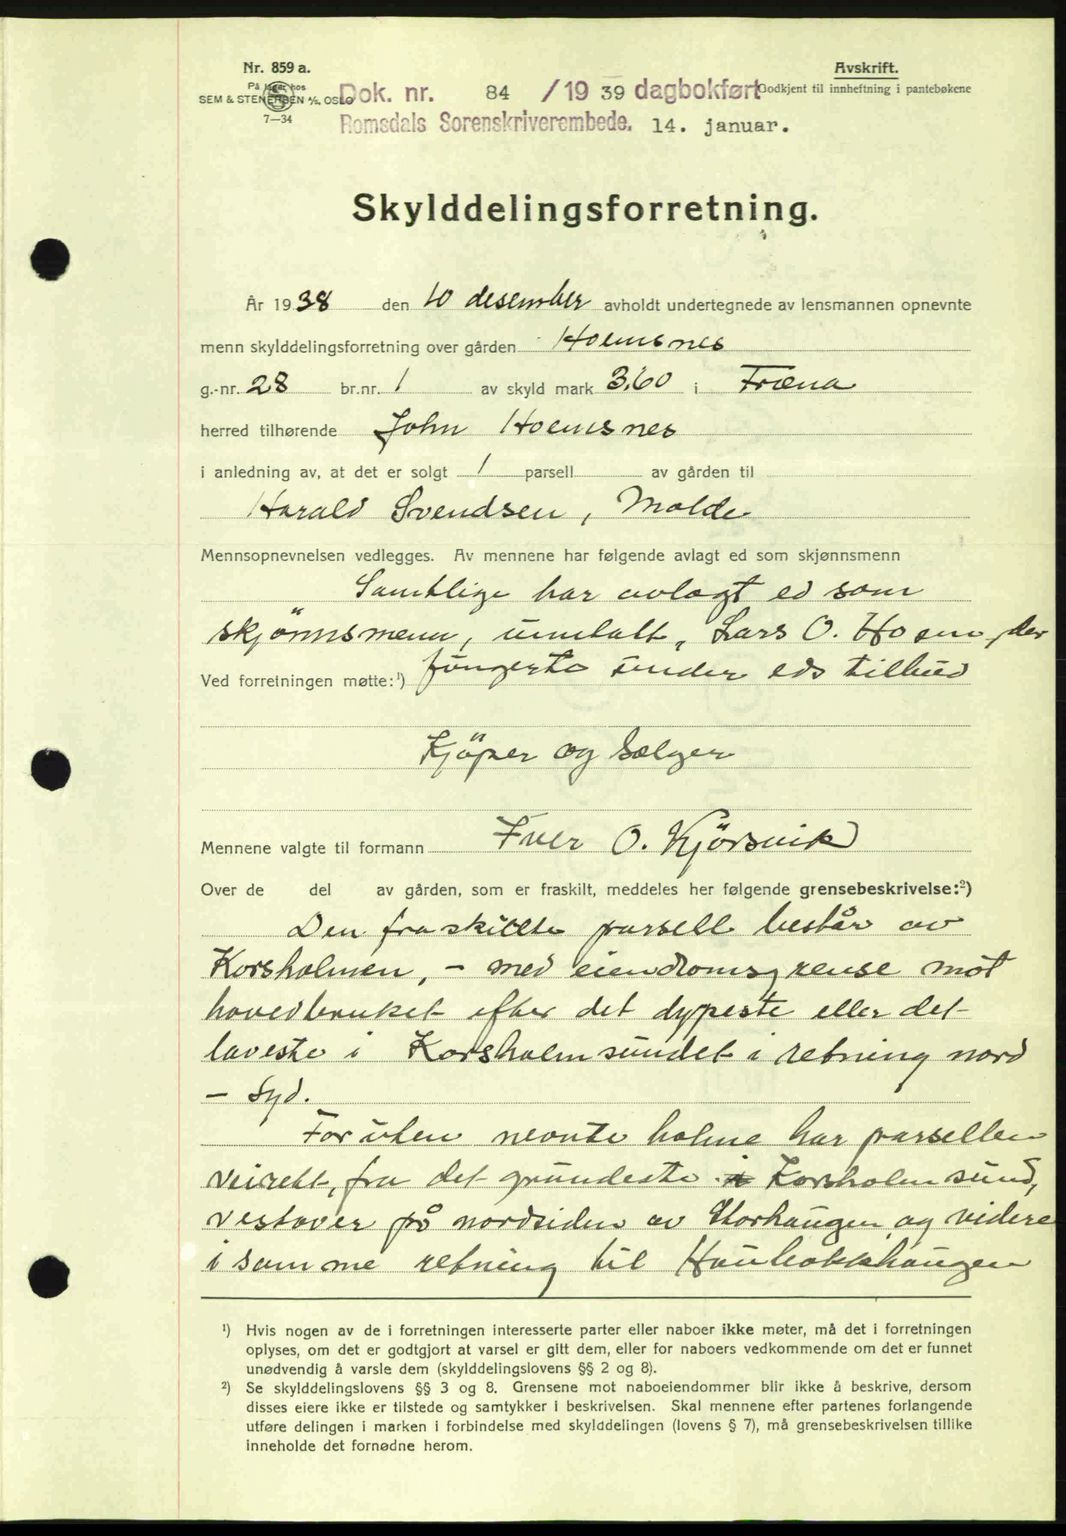 Nr. 859 a.
På lager hos
SEM & STENERSEN A/S, OSLO
7—34
Dok. nr. 84 / 19 39 dagbokført
Romsdals Sorenskriverembede. 14. januar.
Avskrift.
Godkjent til innheftning i pantebøkene
Skylddelingsforretning.
År 1938 den 10 desember avholdt undertegnede av lensmannen opnevnte
menn skylddelingsforretning over gården Hoemsnes
g.-nr. 28 br.nr. 1 av skyld mark 3.60 i Fræna
herred tilhørende John Hoemsnes
i anledning av, at det er solgt 1 parsell av gården til
Harald Svendsen, Molde
Mennsopnevnelsen vedlegges. Av mennene har følgende avlagt ed som skjønnsmenn
Samtlige har avlagt ed som
skjønnsmenn, unntatt, Lars O. Hoem, der
fungerte under eds tilbud
Ved forretningen møtte:¹)
Kjöper og Selger
Mennene valgte til formann Iver O. Kjörsvik
Over de del av gården, som er fraskilt, meddeles her følgende grensebeskrivelse:²)
Den fraskillte parsell består av
Korsholmen, – med eiendomsgrense mot
hovedbruket efter det dypeste eller det
laveste i Korsholmsundet i retning nord
– Syd.
Foruten nevnte holme har parsellen
veirett, fra det grundeste i Korsholmsund,
vestover på nordsiden av Storhaugen og videre
i samme retning til Haubakkhaugen
¹) Hvis nogen av de i forretningen interesserte parter eller naboer ikke møter, må det i forretningen
oplyses, om det er godtgjort at varsel er gitt dem, eller for naboers vedkommende om det er funnet
unødvendig å varsle dem (skylddelingslovens §§ 2 og 8).
²) Se skylddelingslovens §§ 3 og 8. Grensene mot naboeiendommer blir ikke å beskrive, dersom
disses eiere ikke er tilstede og samtykker i beskrivelsen. Skal mennene efter partenes forlangende
utføre delingen i marken i forbindelse med skylddelingen (lovens § 7), må grensebeskrivelsen tillike
inneholde det fornødne herom.